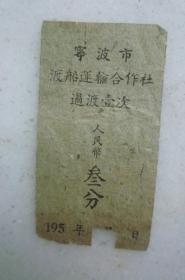 寧波市
渡船運輸合作社
過渡壹次
人民幣
叁分
195 年 日